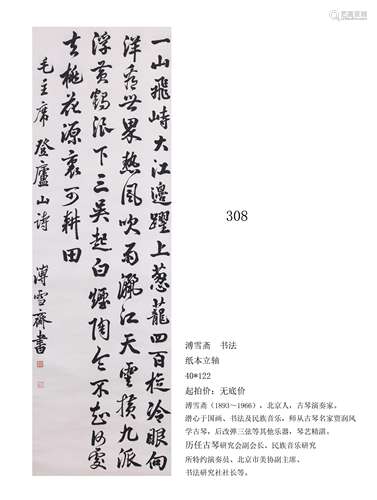 一山飛峙大江邊躍上葱蘢四百旋冷眼向
洋看世界熱風吹雨灑江天雲橫九派
浮黃鶴浪下三吳起白煙陶令不知何處
去桃花源裏可耕田
毛主席 登廬山詩 溥雪齋書
308
溥雪斋 书法
纸本立轴
40*122
起拍价：无底价
溥雪斋（1893～1966），北京人，古琴演奏家。
潜心于国画、书法及民族音乐，师从古琴家贾润风
学古琴，后改弹三弦等其他乐器，琴艺精湛。
历任古琴研究会副会长、民族音乐研究
所特约演奏员、北京市美协副主席、
书法研究社社长等。